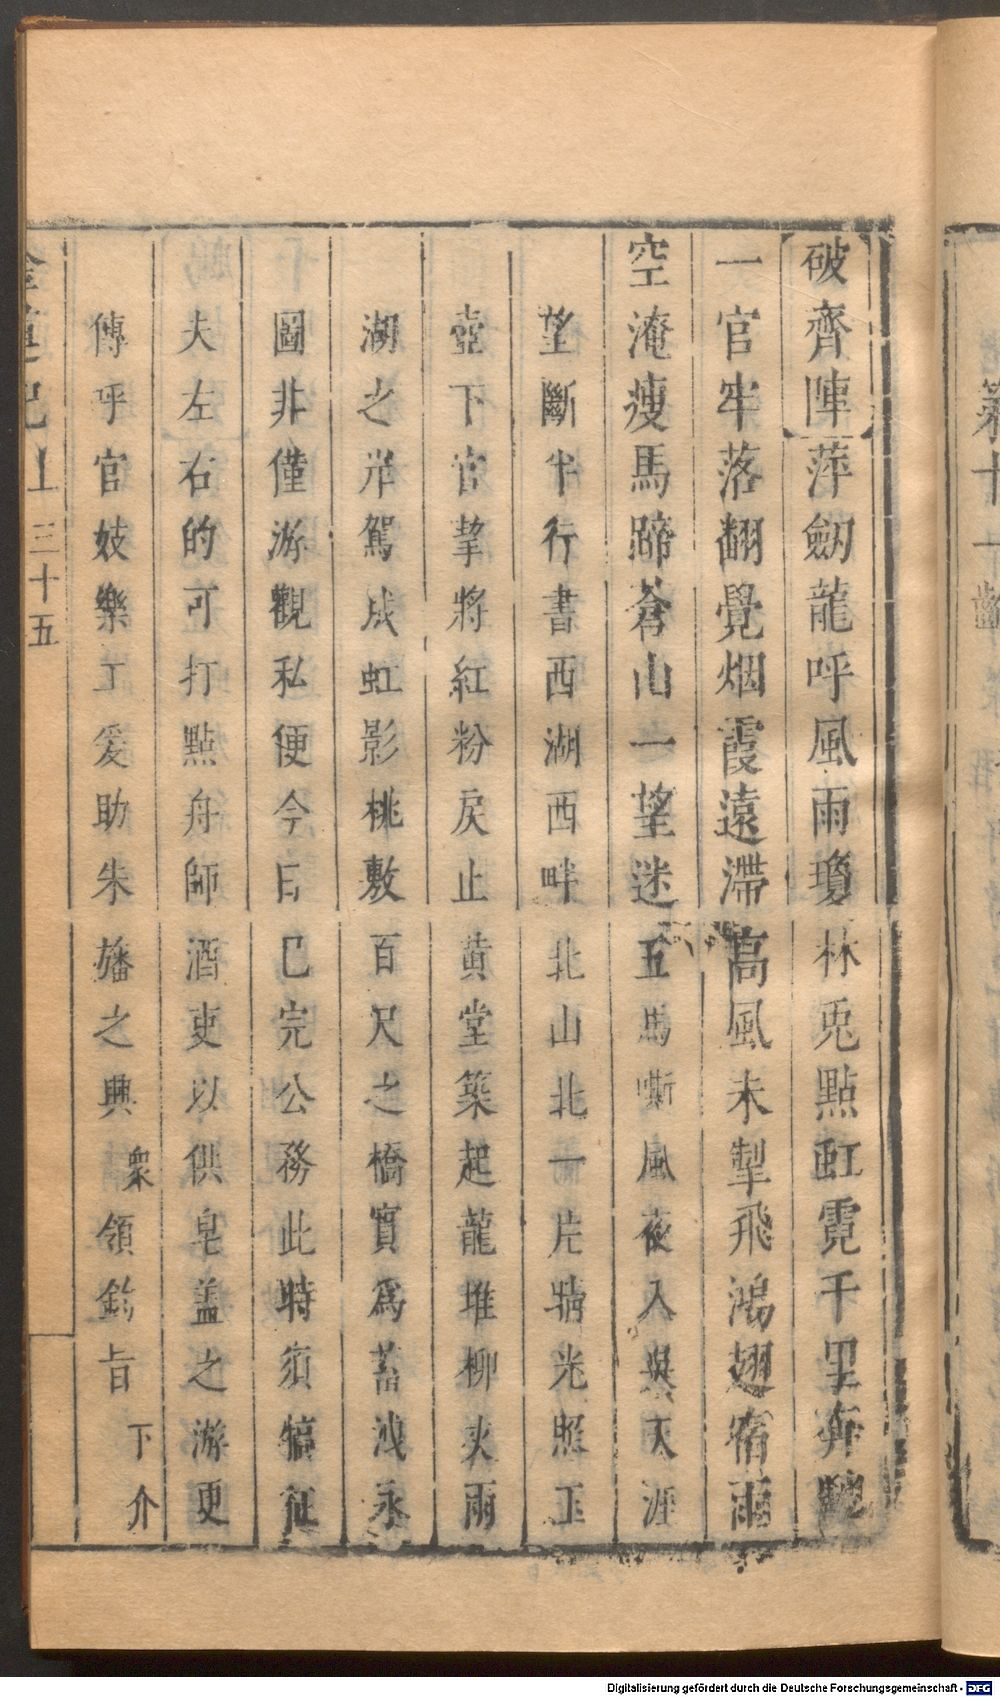 破齊陣萍劒龍呼風雨瓊林兎點虹霓千里奔
一官牢落翻覺烟霞遠滯高風未掣飛鴻翅宿雨
空淹瘦馬蹄蒼山一望迷五馬嘶風夜入吳天涯
望斷半行書西湖西畔北山北一片晴光照玉
壺下官挈將紅粉戾止黄堂築起龍堆柳夾兩
湖之岸駕成虹影桃敷百尺之橋實爲蓄洩永
圖非僅游觀私便今日已完公務此時須犒征
夫左右的可打點舟師酒吏以供皂盖之游更
傳乎官妓樂工爰助朱旛之興衆領鈞旨下介
記上三十五
築十
Digitalisierung gefördert durch die Deutsche Forschungsgemeinschaft - DFG